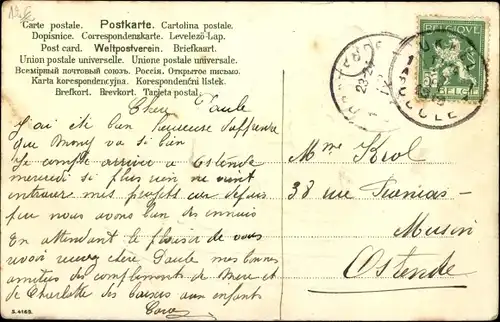 Carte postale. Postkarte. Cartolina postale.
Dopisnice. Correspondenskarte. Levelező-Lap.
Post card. Weltpostverein. Briefkaart.
Union postale universelle. Unione postale universale.
Всемірный почтовый союзъ. Россія. Открытое письмо.
Karta korespondencyjna. Korespondenční lístek.
Brefkort. Brevkort. Tarjeta postal.
Chère Paule
J'ai été bien heureuse d'apprendre
que va si bien
Je compte arriver à Ostende
mercredi si plus rien ne vient
entraver mes projets car depuis
peu nous avons bien des ennuis
En attendant le plaisir de vous
revoir recevez chère Paule mes bonnes
amitiés des compliments de Mère et
de Charlotte des baisers aux enfants
S. 4163.
BELGIQUE
BELGI
UCCLE
Mme Krol
38 rue
Ostende